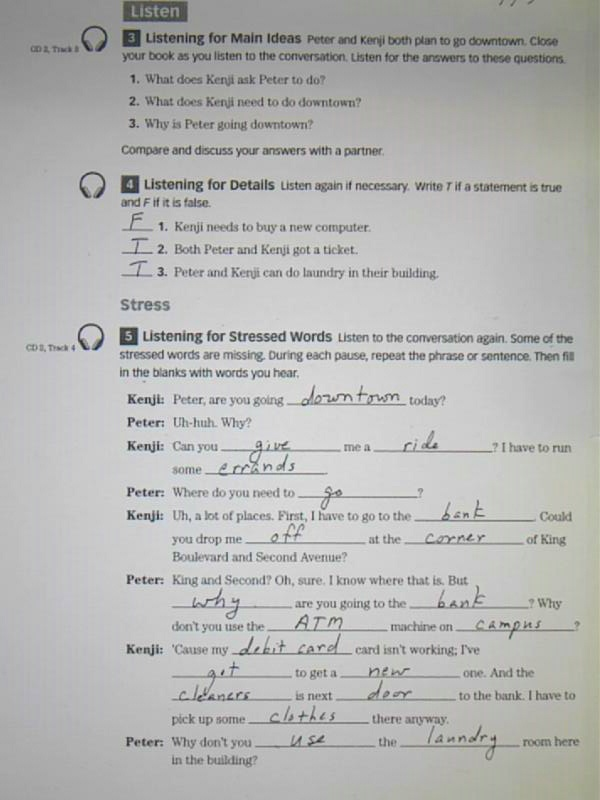 Listen
CD 2, Track 3
3 Listening for Main Ideas Peter and Kenji both plan to go downtown. Close
your book as you listen to the conversation. Listen for the answers to these questions.
1. What does Kenji ask Peter to do?
2. What does Kenji need to do downtown?
3. Why is Peter going downtown?
Compare and discuss your answers with a partner.
4 Listening for Details Listen again if necessary. Write T if a statement is true
and F if it is false.
F 1. Kenji needs to buy a new computer.
T 2. Both Peter and Kenji got a ticket.
T 3. Peter and Kenji can do laundry in their building.
Stress
CD 2, Track 4
5 Listening for Stressed Words Listen to the conversation again. Some of the
stressed words are missing. During each pause, repeat the phrase or sentence. Then fill
in the blanks with words you hear.
Kenji: Peter, are you going downtown today?
Peter: Uh-huh. Why?
Kenji: Can you give me a ride ? I have to run
some errands .
Peter: Where do you need to go ?
Kenji: Uh, a lot of places. First, I have to go to the bank . Could
you drop me off at the corner of King
Boulevard and Second Avenue?
Peter: King and Second? Oh, sure. I know where that is. But
why are you going to the bank ? Why
don't you use the ATM machine on campus ?
Kenji: 'Cause my debit card card isn't working; I've
got to get a new one. And the
cleaners is next door to the bank. I have to
pick up some clothes there anyway.
Peter: Why don't you use the laundry room here
in the building?